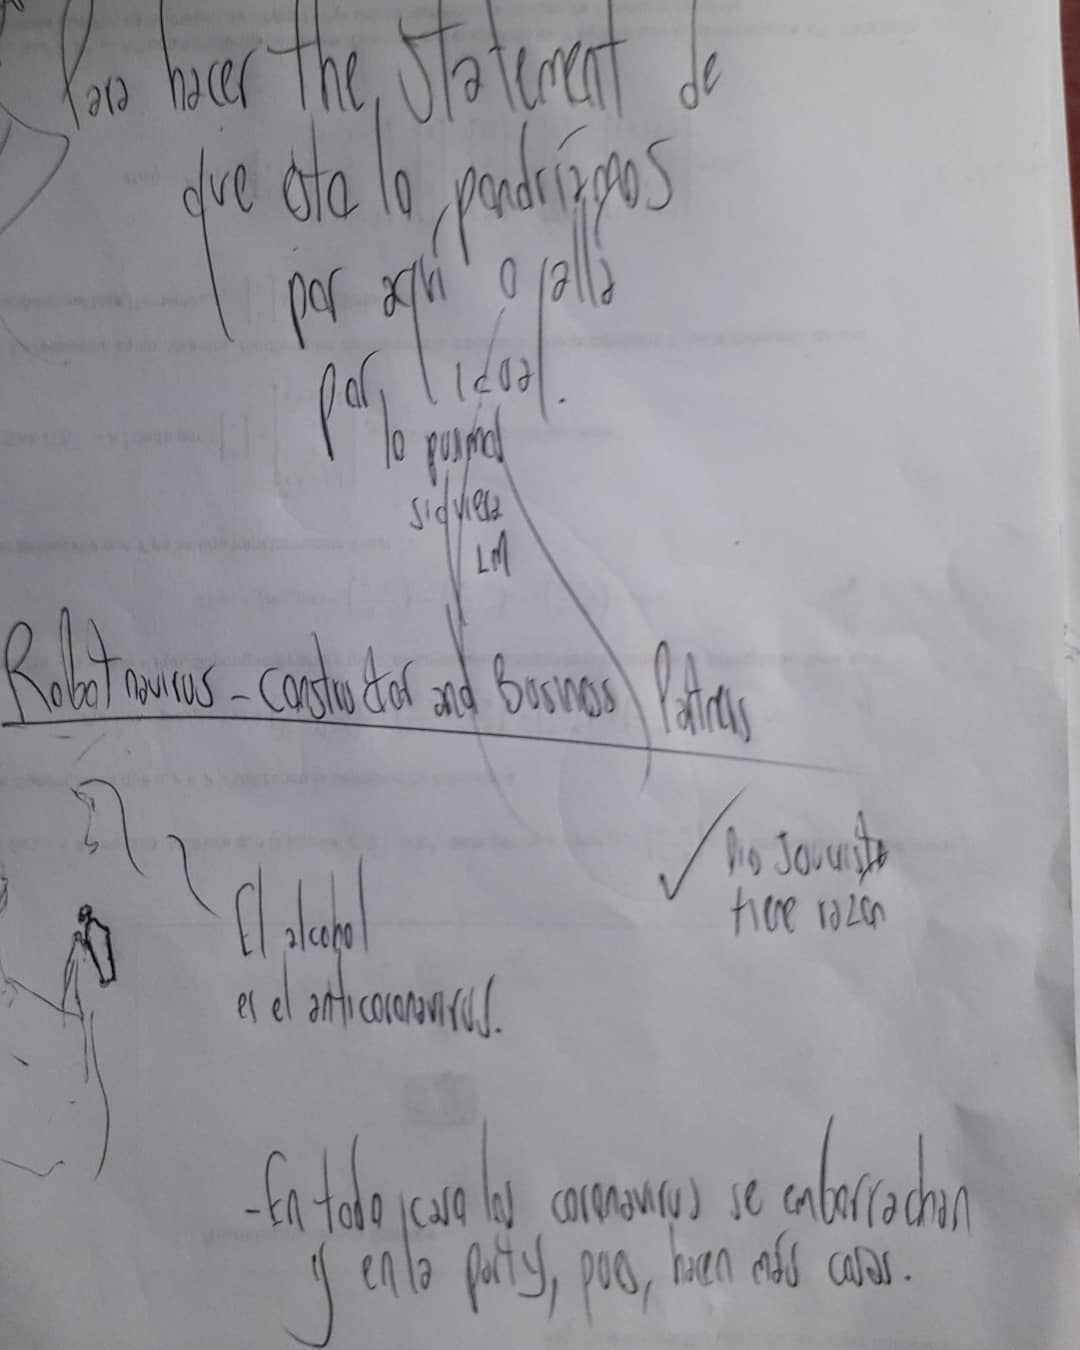 Para hacer the Statement de
que esta lo pondríamos
por aquí o allá
por
lo
LM
Robotnavirus - Constructor and Business
El alcohol
es el anticoronavirus.
tiene razón
- En todo caso los coronavirus se emborrachan
y en la party, pues, hacen más cosas.